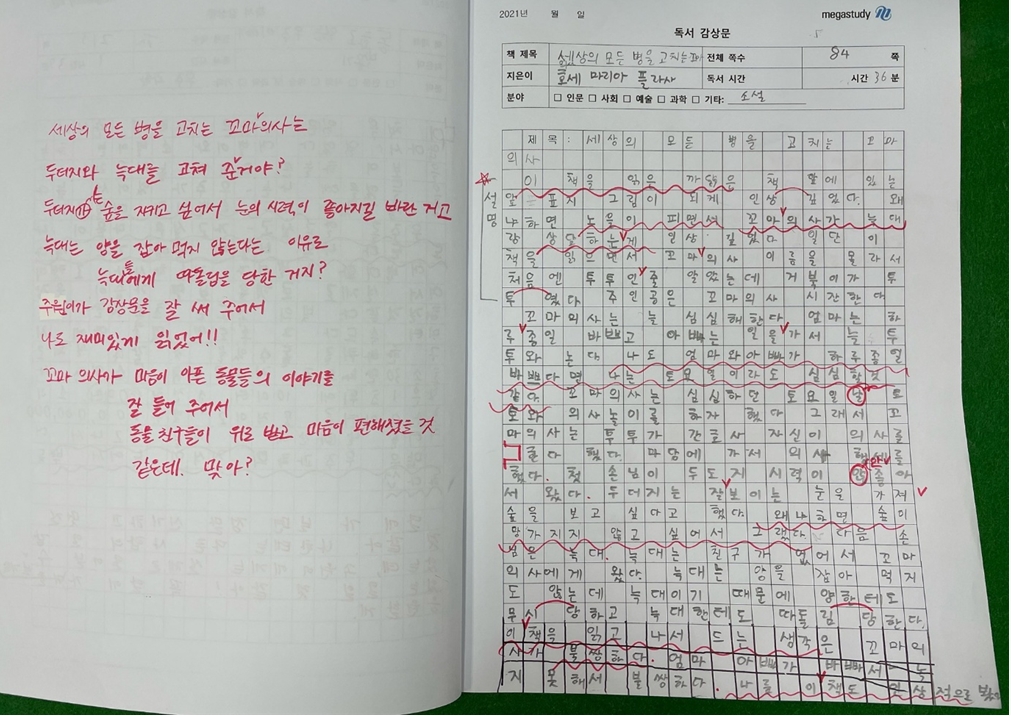 세상의 모든 병을 고치는 꼬마의사는
두더지와 늑대를 고쳐 준거야?
숲을 지키고 싶어서 눈의 시력이 좋아지길 바란 거고
늑대는 양을 잡아 먹지 않는다는 이유로
늑대에게 따돌림을 당한 거지?
주원이가 감상문을 잘 써 주어서
나도 재미있게 읽었어!!
꼬마 의사가 마음이 아픈 동물들의 이야기를
잘 들어 주어서
동물 친구들이 위로 받고 마음이 편해졌을 것
같은데. 맞아?
2021년 월 일
megastudy
독서 감상문
책 제목 세상의 모든 병을 고치는꼬마 전체 쪽수 84 쪽
지은이 호세 마리아 플라사 독서 시간 시간 36 분
분야 □ 인문 □ 사회 □ 예술 □ 과학 □ 기타: 소설
제목: 세상의 모든 병을 고치는 꼬마
의사
이 책을 읽은 까닭은 책 앞에 있는
설명
앞 표지 그림이 되게 인상 깊었다. 왜
냐하면 노을이 피면서 꼬마의사가 늑대
랑 상담하는게 인상 깊었다 일단 이
책을 읽으면서 꼬마의사 이름을 몰라서
처음엔 투투인줄 알았는데 거북이가 투
투였다 주인공은 꼬마의사 시간한다
꼬마의사는 늘 심심해한다. 엄마는 하
루종일 바쁘고 아빠는 일을가서 늘 투
투와 논다. 나도 엄마와아빠가 하루종일
바쁘다면 나는 토요일이라도 심심할것
같아. 꼬마의사는 심심하던 토요일날 토
의사놀이를 하자 했다 그래서 꼬
마의사는 투투가 간호사 자신이 의사를
한다 했다. 마당에 가서 의사 행세를
했다. 첫 손님이 두도지 시력이 안좋아
서 왔다. 두더지는 잘보이는 눈을 가져
숲을 보고 싶다고 했다. 왜냐하면 숲이
망가지지 않고 싶어서 그랬다. 다음 손
님은 늑대. 늑대는 친구가 없어서 꼬마
의사에게 왔다. 늑대는 양을 잡아 먹지
도 않는데 늑대이기 때문에 양한테도
무시 당하고 늑대한테도 따돌림 당한다.
이책을 읽고 나서 드는 생각은 꼬마의
사가 불쌍하다. 엄마 아빠가 바빠서 놀
지 못해서 불쌍하다. 나를 이책도 인상 적으로 봤